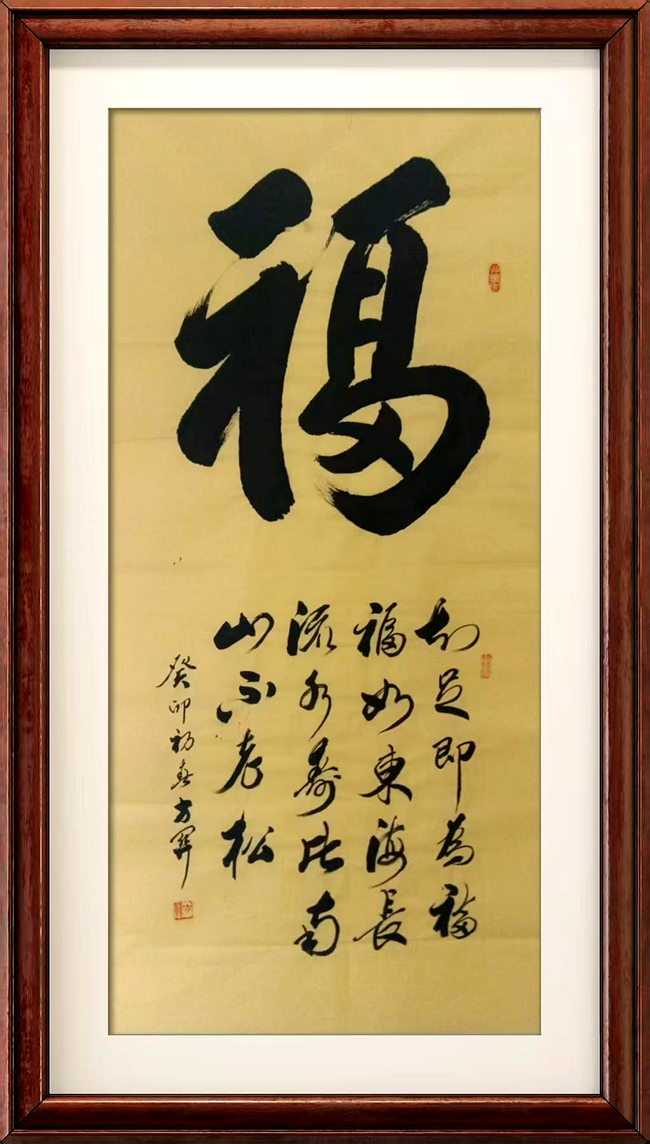 福
知足即為福
福如東海長
流水壽比南
山不老松
癸卯初春方军